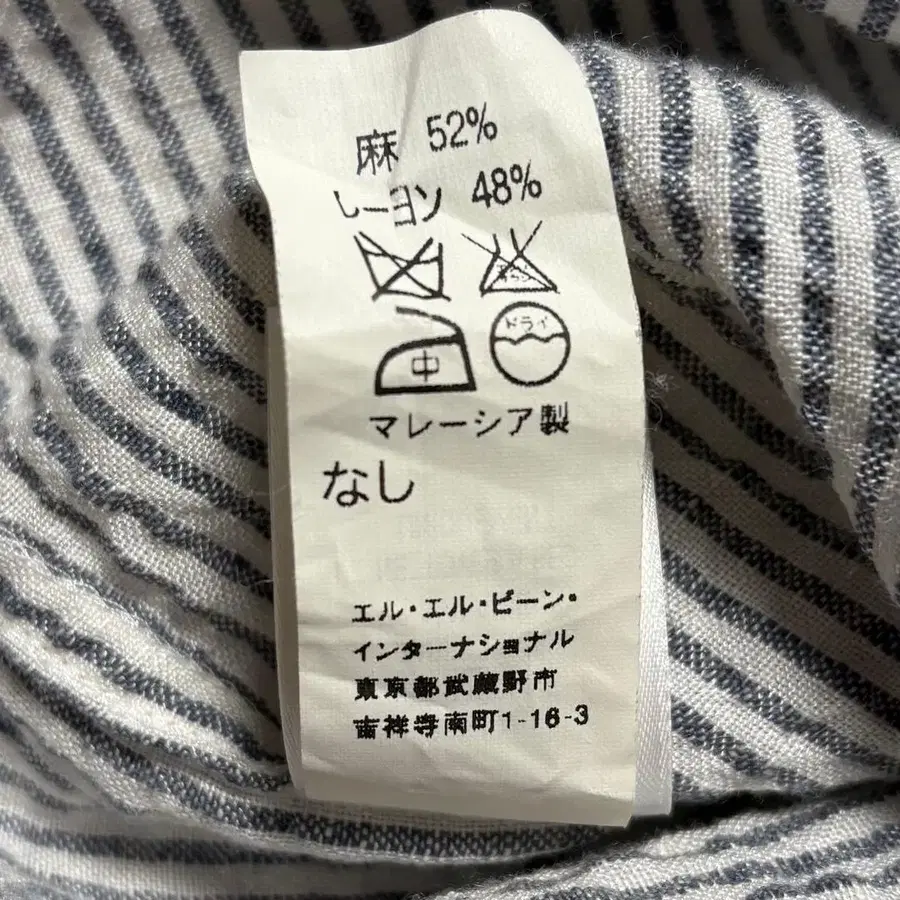 麻 52%
レーヨン 48%
中
ドライ
マレーシア製
なし
エル・エル・ビーン・
インターナショナル
東京都武蔵野市
吉祥寺南町1-16-3